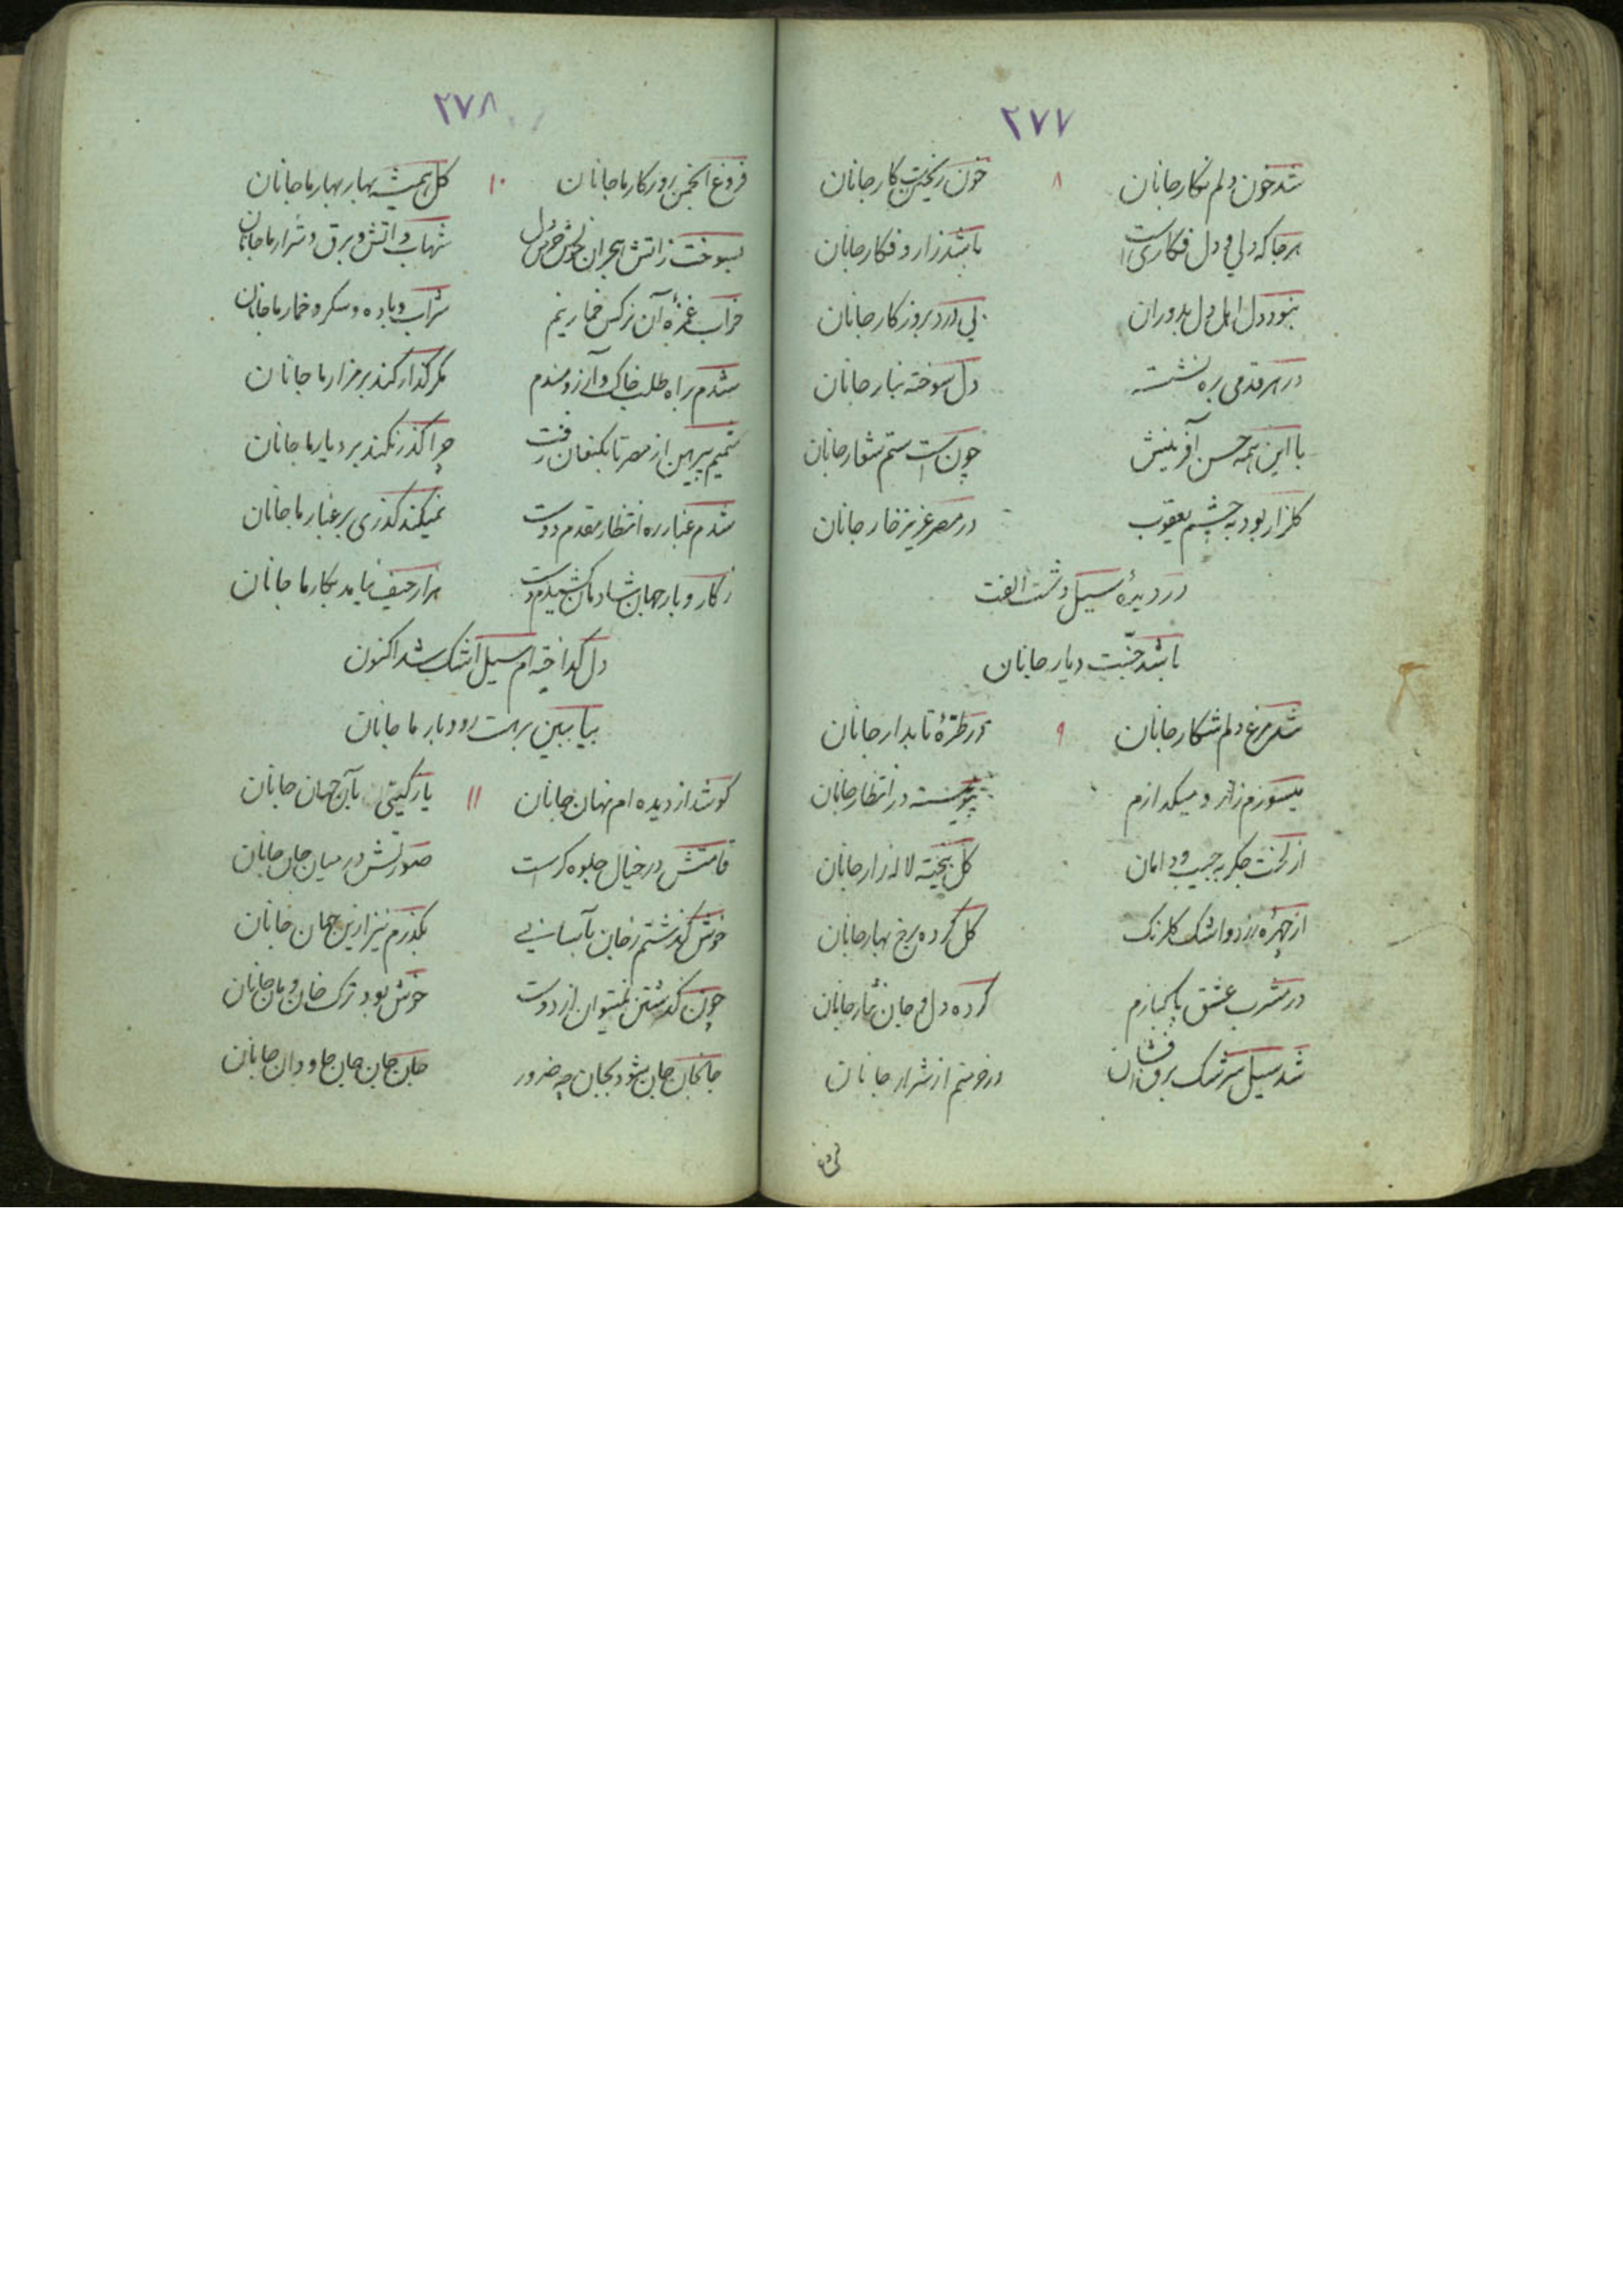 ۲۷۷
شد خون دلم نگار جانان ۸ خون ریختنست کار جانان
هر جا که دلی و دل فکاری است باشد زار و فکار جانان
نبود دل اهل دل بدوران بی درد بروزکار جانان
در هر قدمی بره نشسته دل سوخته جانان
با این همه حسن آفرینش چون است ستم شعار جانان
کلزار بود به چشم یعقوب در مصر عزیز خار جانان
در دیدهٔ سیل دشت الفت
باشد جنّت دیار جانان
شد مرغ دلم شکار جانان ۹ در طرّهٔ تابدار جانان
میسوزم زار و میکدازم پیوسته در انتظار جانان
از لخت جکر به جیب و دامان کل ریخته لاله زار جانان
از چهرهٔ زرد و اشک کلرنک کل کرده رخ بهار جانان
در مشرب عشق پاکبازم کرده دل و جان نثار جانان
شد سیل سرشک برق افشان در خرمنم از شرار جانان
۲۷۸
فروغ انجمن روزکار ما جانان ۱۰ کل همیشه بهار بهار ما جانان
بسوخت زاتش هجران دل شهاب و اتش و برق و شرار ما جانان
خراب غمزهٔ آن نرکس خمارینم شراب و باده و سکر و خمار ما جانان
شدم براه طلب خاک و آرزومندم مکر کذار کند بر مزار ما جانان
شمیم پیرهن از مصر تا بکنعان رفت چرا کذر نکند بر دیار ما جانان
شدم غبار ره انتظار مقدم دوست نمیکند کذری بر غبار ما جانان
ز کار و بار جهان شادمان دست هزار حیف نیامد بکار ما جانان
دل کداخته ام سیل اشک شد اکنون
بیا ببین برهت رودبار ما جانان
کو شد از دیده ام نهان جانان ۱۱ یار کیتی بآن جهان جانان
قامتش در خیال جلوه کر است صورتش در میان جان جانان
خوش کذشتم ز جان بآسانی بکذرم نیز ازین جهان جانان
چون کذشتن نمیتوان از دوست خوش بود ترک خان و مان جانان
جانجان جان شود بجان چه ضرور جان جان جان جاودان جانان